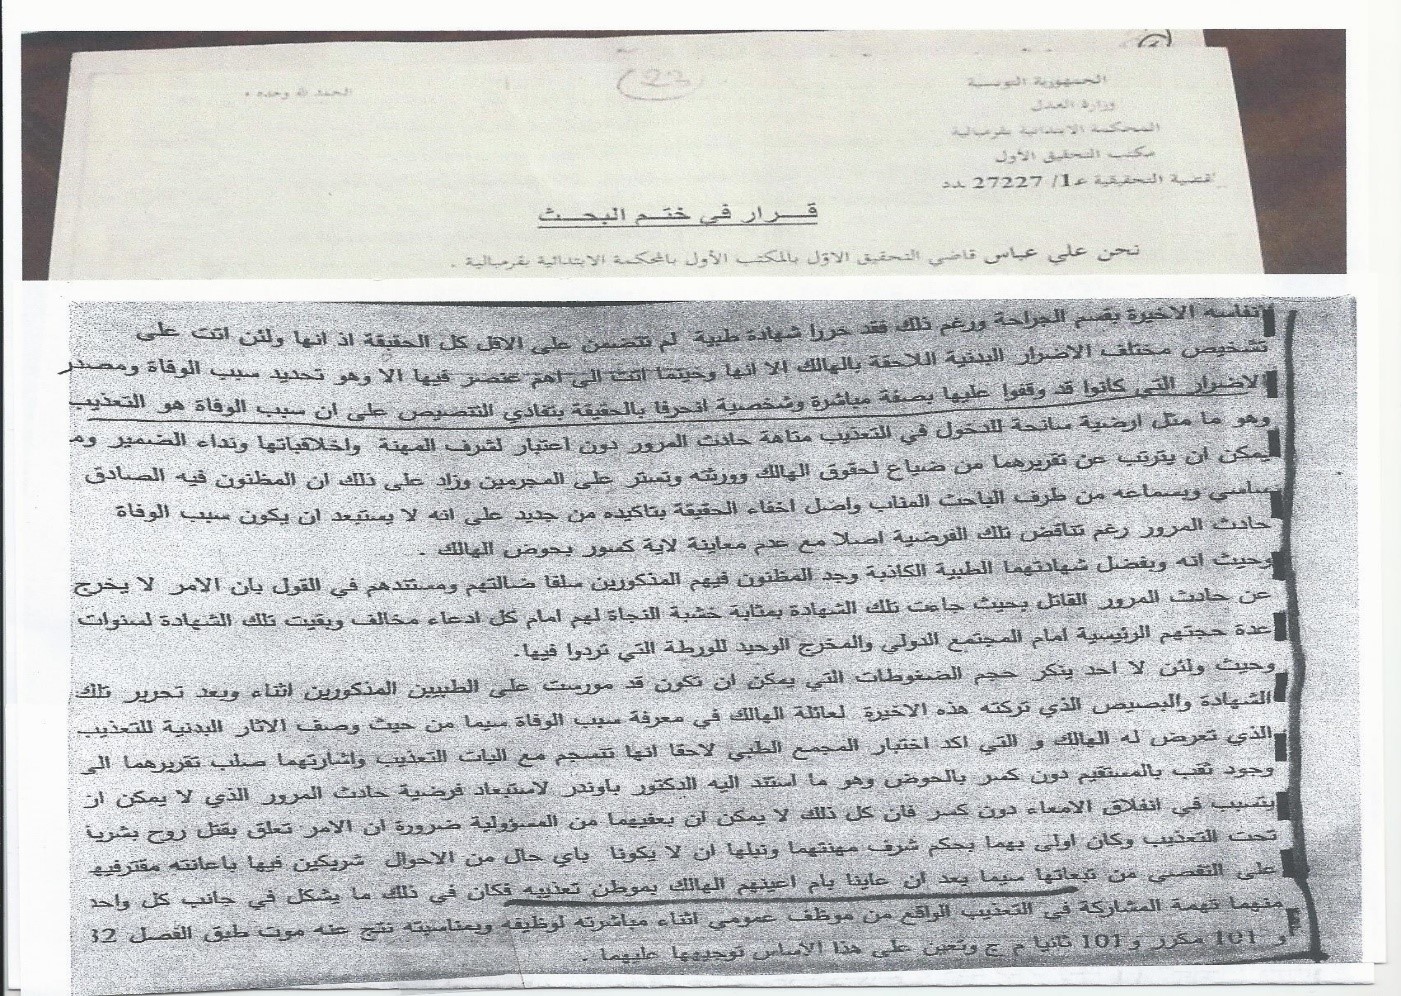 23
الجمهورية التونسية
الحمد لله وحده
وزارة العدل
المحكمة الابتدائية بقرمبالية
مكتب التحقيق الأول
القضية التحقيقية عـ1/ 27227 ـدد
قـــرار في ختــم البحــث
نحن علي عباس قاضي التحقيق الاوّل بالمكتب الأول بالمحكمة الابتدائية بقرمبالية .
انفاسه الاخيرة بقسم الجراحة ورغم ذلك فقد حررا شهادة طبية لم تتضمن على الاقل كل الحقيقة اذ انها ولئن اتت على
تشخيص مختلف الاضرار البدنية اللاحقة بالهالك الا انها وحيثما اتت الى اهم عنصر فيها الا وهو تحديد سبب الوفاة ومصدر
الاضرار التي كانوا قد وقفوا عليها بصفة مباشرة وشخصية انحرفا بالحقيقة بتفادي التنصيص على ان سبب الوفاة هو التعذيب
وهو ما مثل ارضية سانحة للدخول في التعذيب متاهة حادث المرور دون اعتبار لشرف المهنة واخلاقياتها ونداء الضمير وم
يمكن ان يترتب عن تقريرهما من ضياع لحقوق الهالك وورثته وتستر على المجرمين وزاد على ذلك ان المظنون فيه الصادق
ساسي وبسماعه من طرف الباحث المناب واصل اخفاء الحقيقة بتاكيده من جديد على انه لا يستبعد ان يكون سبب الوفاة
حادث المرور رغم تناقض تلك الفرضية اصلا مع عدم معاينة لاية كسور بحوض الهالك .
وحيث انه وبفضل شهادتهما الطبية الكاذبة وجد المظنون فيهم المذكورين سلفا ضالتهم ومستندهم في القول بان الامر لا يخرج
عن حادث المرور القاتل بحيث جاءت تلك الشهادة بمثابة خشبة النجاة لهم امام كل ادعاء مخالف وبقيت تلك الشهادة لسنوات
عدة حجتهم الرئيسية امام المجتمع الدولي والمخرج الوحيد للورطة التي تردوا فيها.
وحيث ولئن لا احد ينكر حجم الضغوطات التي يمكن ان تكون قد مورست على الطبيبين المذكورين اثناء وبعد تحرير تلك
الشهادة والبصيص الذي تركته هذه الاخيرة لعائلة الهالك في معرفة سبب الوفاة سيما من حيث وصف الاثار البدنية للتعذيب
الذي تعرض له الهالك و التي اكد اختبار المجمع الطبي لاحقا انها تنسجم مع اليات التعذيب واشارتهما صلب تقريرهما الى
وجود ثقب بالمستقيم دون كسر بالحوض وهو ما استند اليه الدكتور باوندر لاستبعاد فرضية حادث المرور الذي لا يمكن ان
يتسبب في انفلاق الامعاء دون كسر فان كل ذلك لا يمكن ان يعفيهما من المسؤولية ضرورة ان الامر تعلق بقتل روح بشرية
تحت التعذيب وكان اولى بهما بحكم شرف مهنتهما ونبلها ان لا يكونا باي حال من الاحوال شريكين فيها باعانته مقترفيه
على التقصي من تبعاتها سيما بعد ان عاينا بام اعينهم الهالك بموطن تعذيبه فكان في ذلك ما يشكل في جانب كل واحد
منهما تهمة المشاركة في التعذيب الواقع من موظف عمومي اثناء مباشرته لوظيفه وبمناسبته نتج عنه موت طبق الفصل 32
و 101 مكرر و 101 ثانيا م ج وتعين على هذا الاساس توجيهها عليهما .